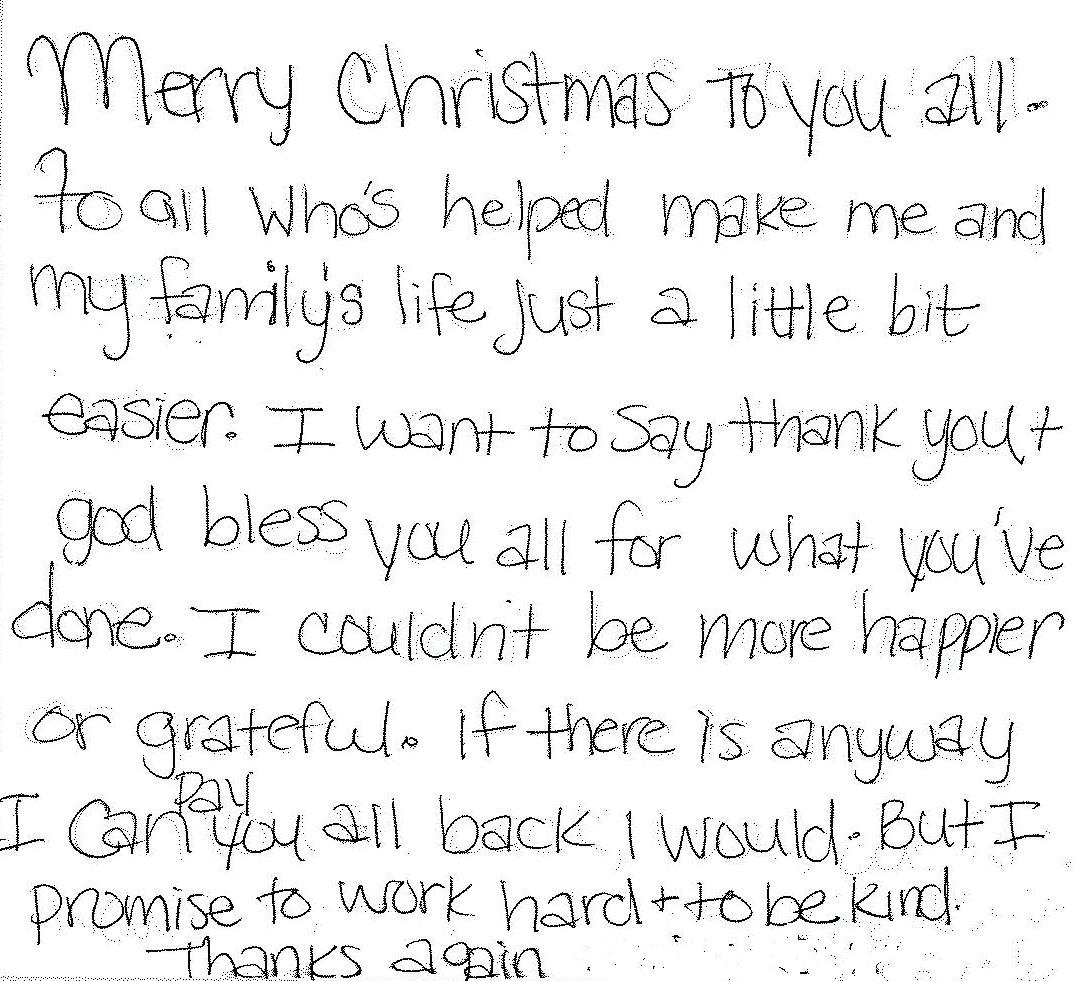 Merry Christmas To you all.
to all who's helped make me and
my family's life just a little bit
easier. I want to say thank you +
god bless you all for what you've
done. I couldn't be more happier
or grateful. If there is anyway
pay
I can you all back I would. But I
promise to work hard + to be kind.
Thanks again